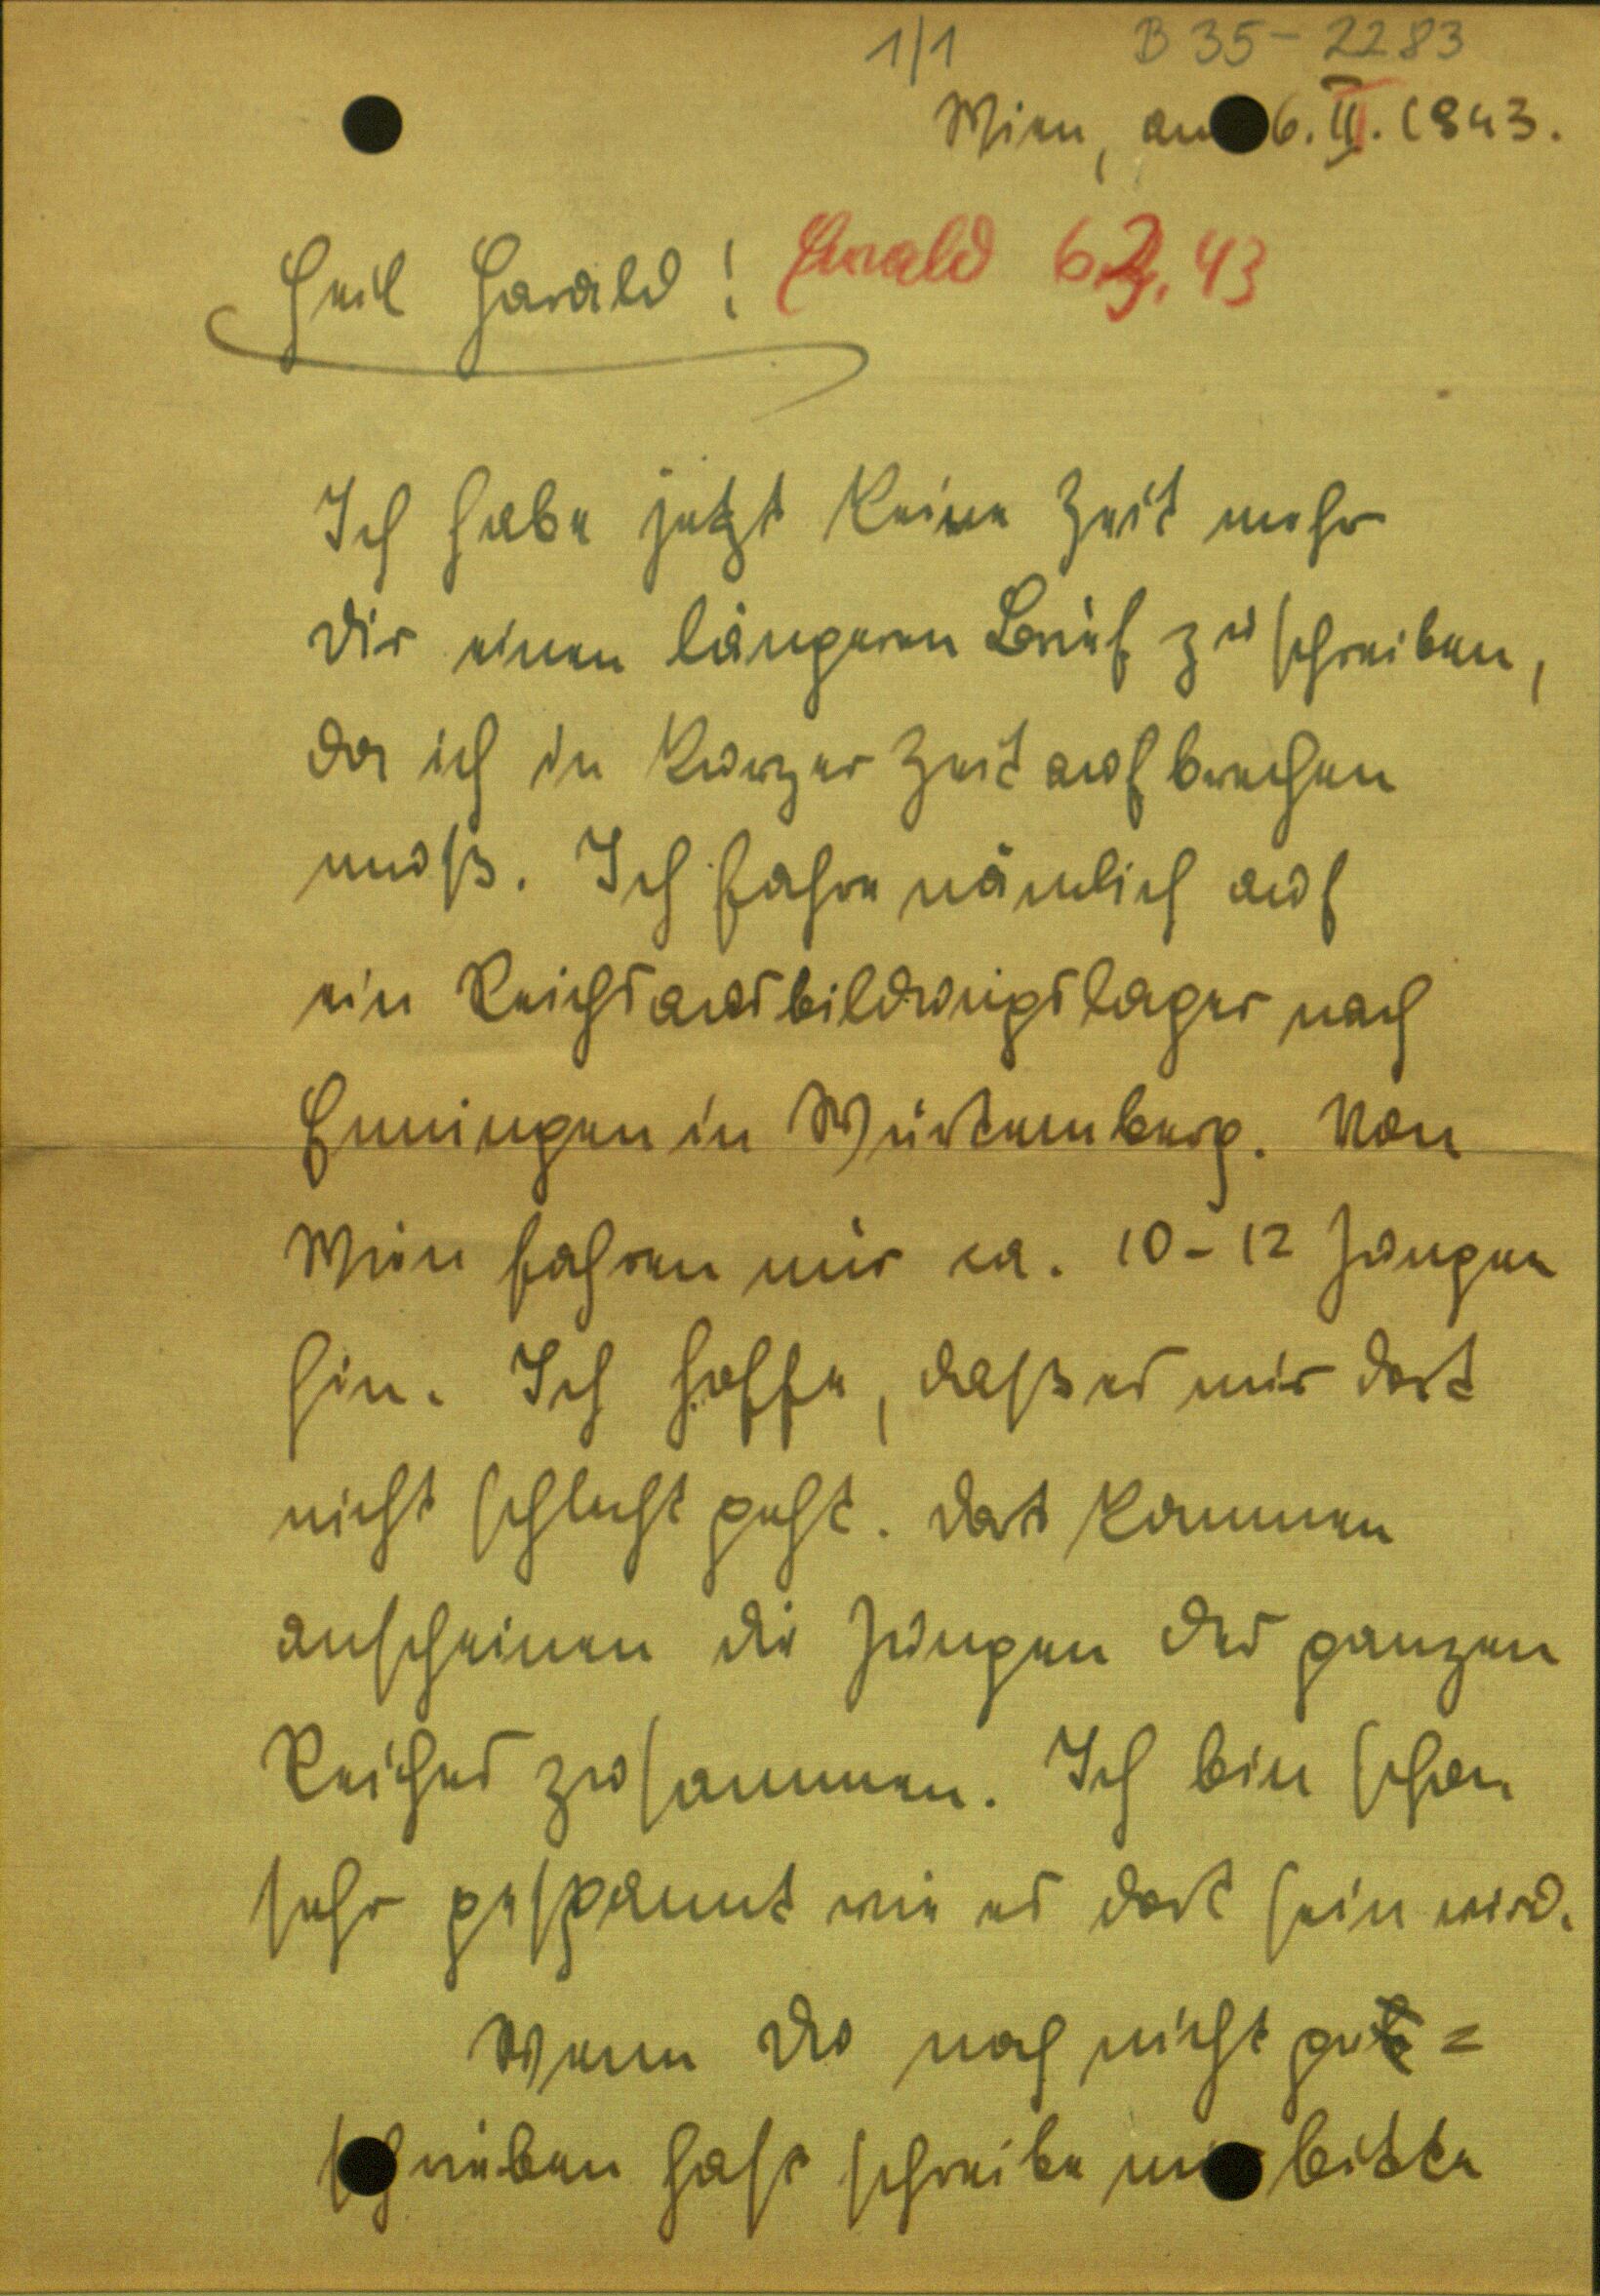 1/1 B 35-2283
Wien, am 6. III. 1943.
Heil Harald! Ewald 6.3.43
Ich habe jetzt keine Zeit mehr
dir einen längeren Brief zu schreiben,
da ich in kurzer Zeit aufbrechen
muß. Ich fahre nämlich auf
ein Reichsausbildungslager nach
Enningen in Würtemberg. Von
Wien fahren wir ca. 10-12 Jungen
hin. Ich hoffe, daß es mir dort
nicht schlecht geht. Dort kommen
anscheinen die Jungen des ganzen
Reiches zusammen. Ich bin schon
sehr gespannt wie es dort sein wird.
Wenn du noch nicht ge=
schrieben hast schreibe mir bitte